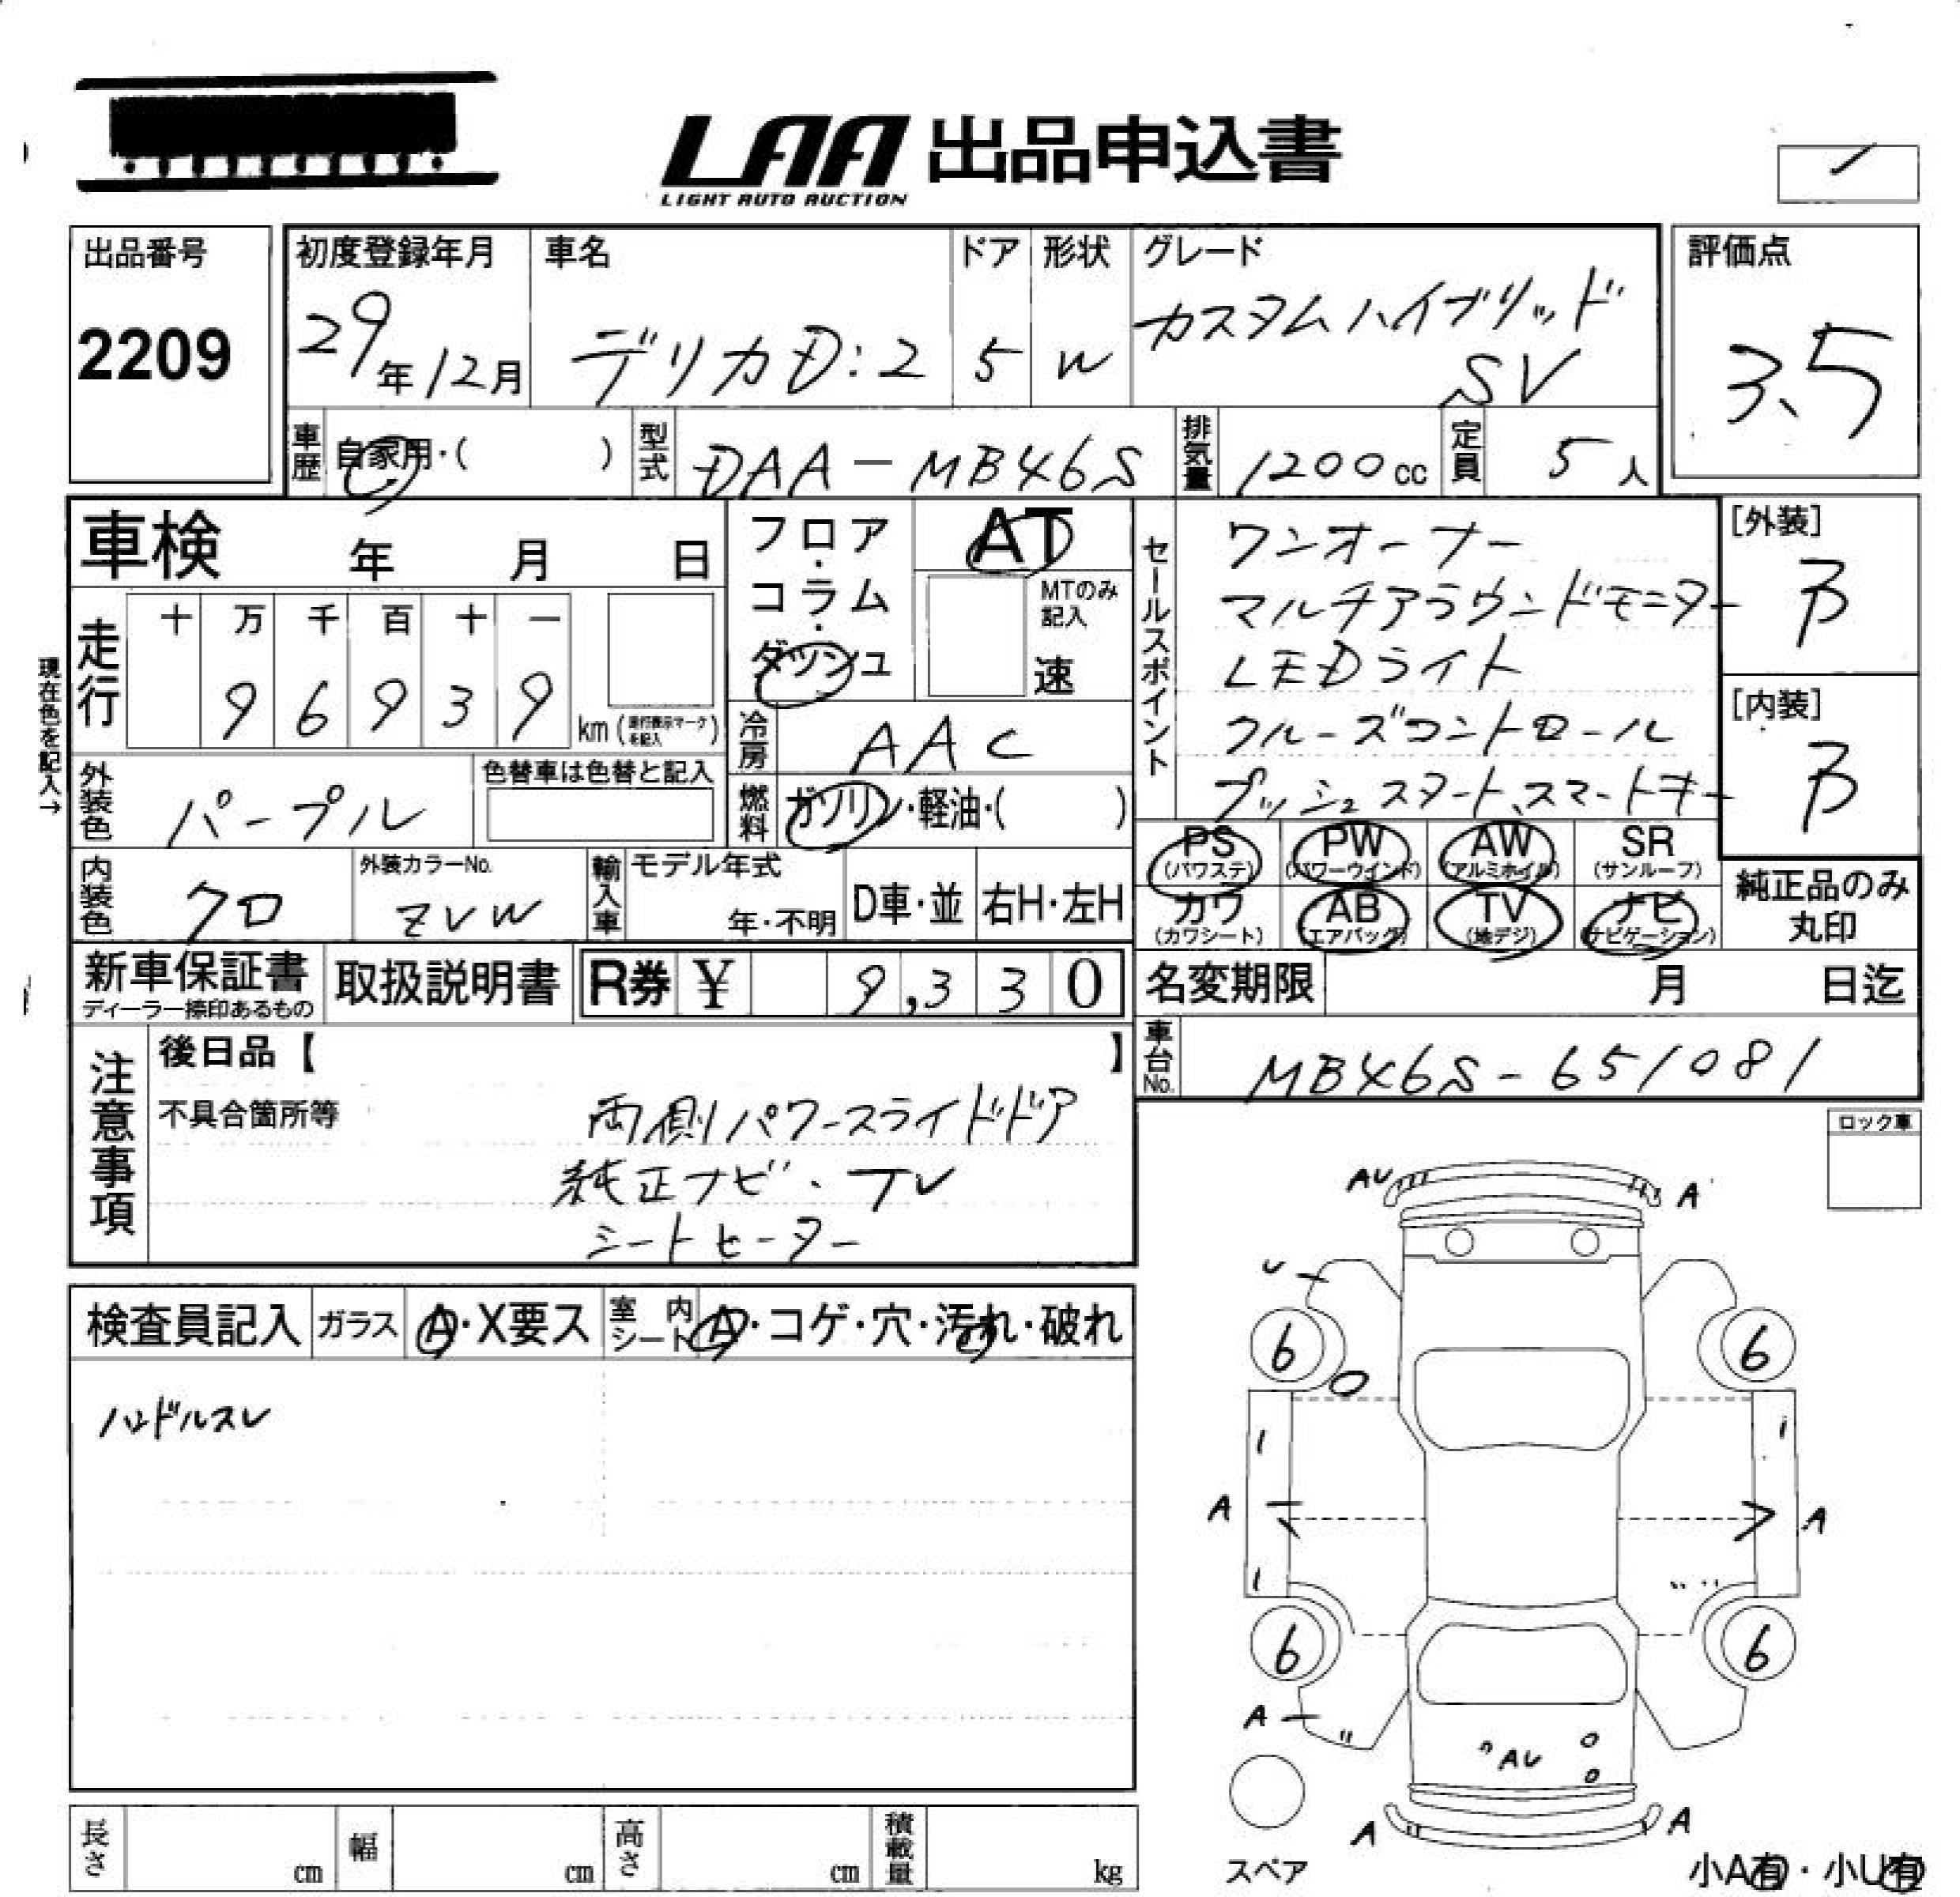 LAA 出品申込書
LIGHT AUTO AUCTION
出品番号
2209
初度登録年月
29年12月
車名
デリカD:2
ドア
5
形状
W
グレード
カスタムハイブリッド
SV
評価点
3.5
車歴 自家用・( )
型式 DAA-MB46S
排気量 1200cc
定員 5人
車検 年 月 日
フロア・コラム・ダッシュ
AT
MTのみ記入
速
セールスポイント
ワンオーナー
マルチアラウンドモニター
LEDライト
クルーズコントロール
プッシュスタート、スマートキー
[外装]
B
[内装]
B
現在色を記入→
走行
十 万 千 百 十 一
9 6 9 3 9 km
冷房 AAC
外装色 パープル
色替車は色替と記入
燃料 ガソリン・軽油・( )
内装色 クロ
外装カラーNo.
ZVW
輸入車
モデル年式
年・不明
D車・並
右H・左H
PS (パワステ)
PW (パワーウインド)
AW (アルミホイル)
SR (サンルーフ)
カワ (カワシート)
AB (エアバッグ)
TV (地デジ)
ナビ (ナビゲーション)
純正品のみ
丸印
新車保証書
ディーラー捺印あるもの
取扱説明書
R券 ¥ 9,330
名変期限 月 日迄
車台No. MB46S-651081
注意事項
後日品【 】
不具合箇所等
両側パワースライドドア
純正ナビ・TV
シートヒーター
ロック車
検査員記入
ガラス A・X要ス
室内シート A・コゲ・穴・汚れ・破れ
ハンドルスレ
AU A
U
6 6
A A
6 6
A
AU
A A
スペア
小A有・小U有
長さ cm
幅 cm
高さ cm
積載量 kg